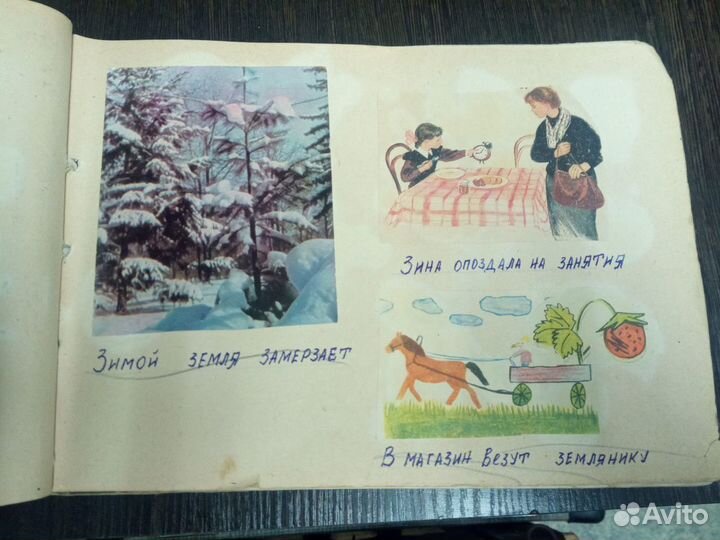 Зимой земля замерзает
Зина опоздала на занятия
В магазин везут землянику
Avito